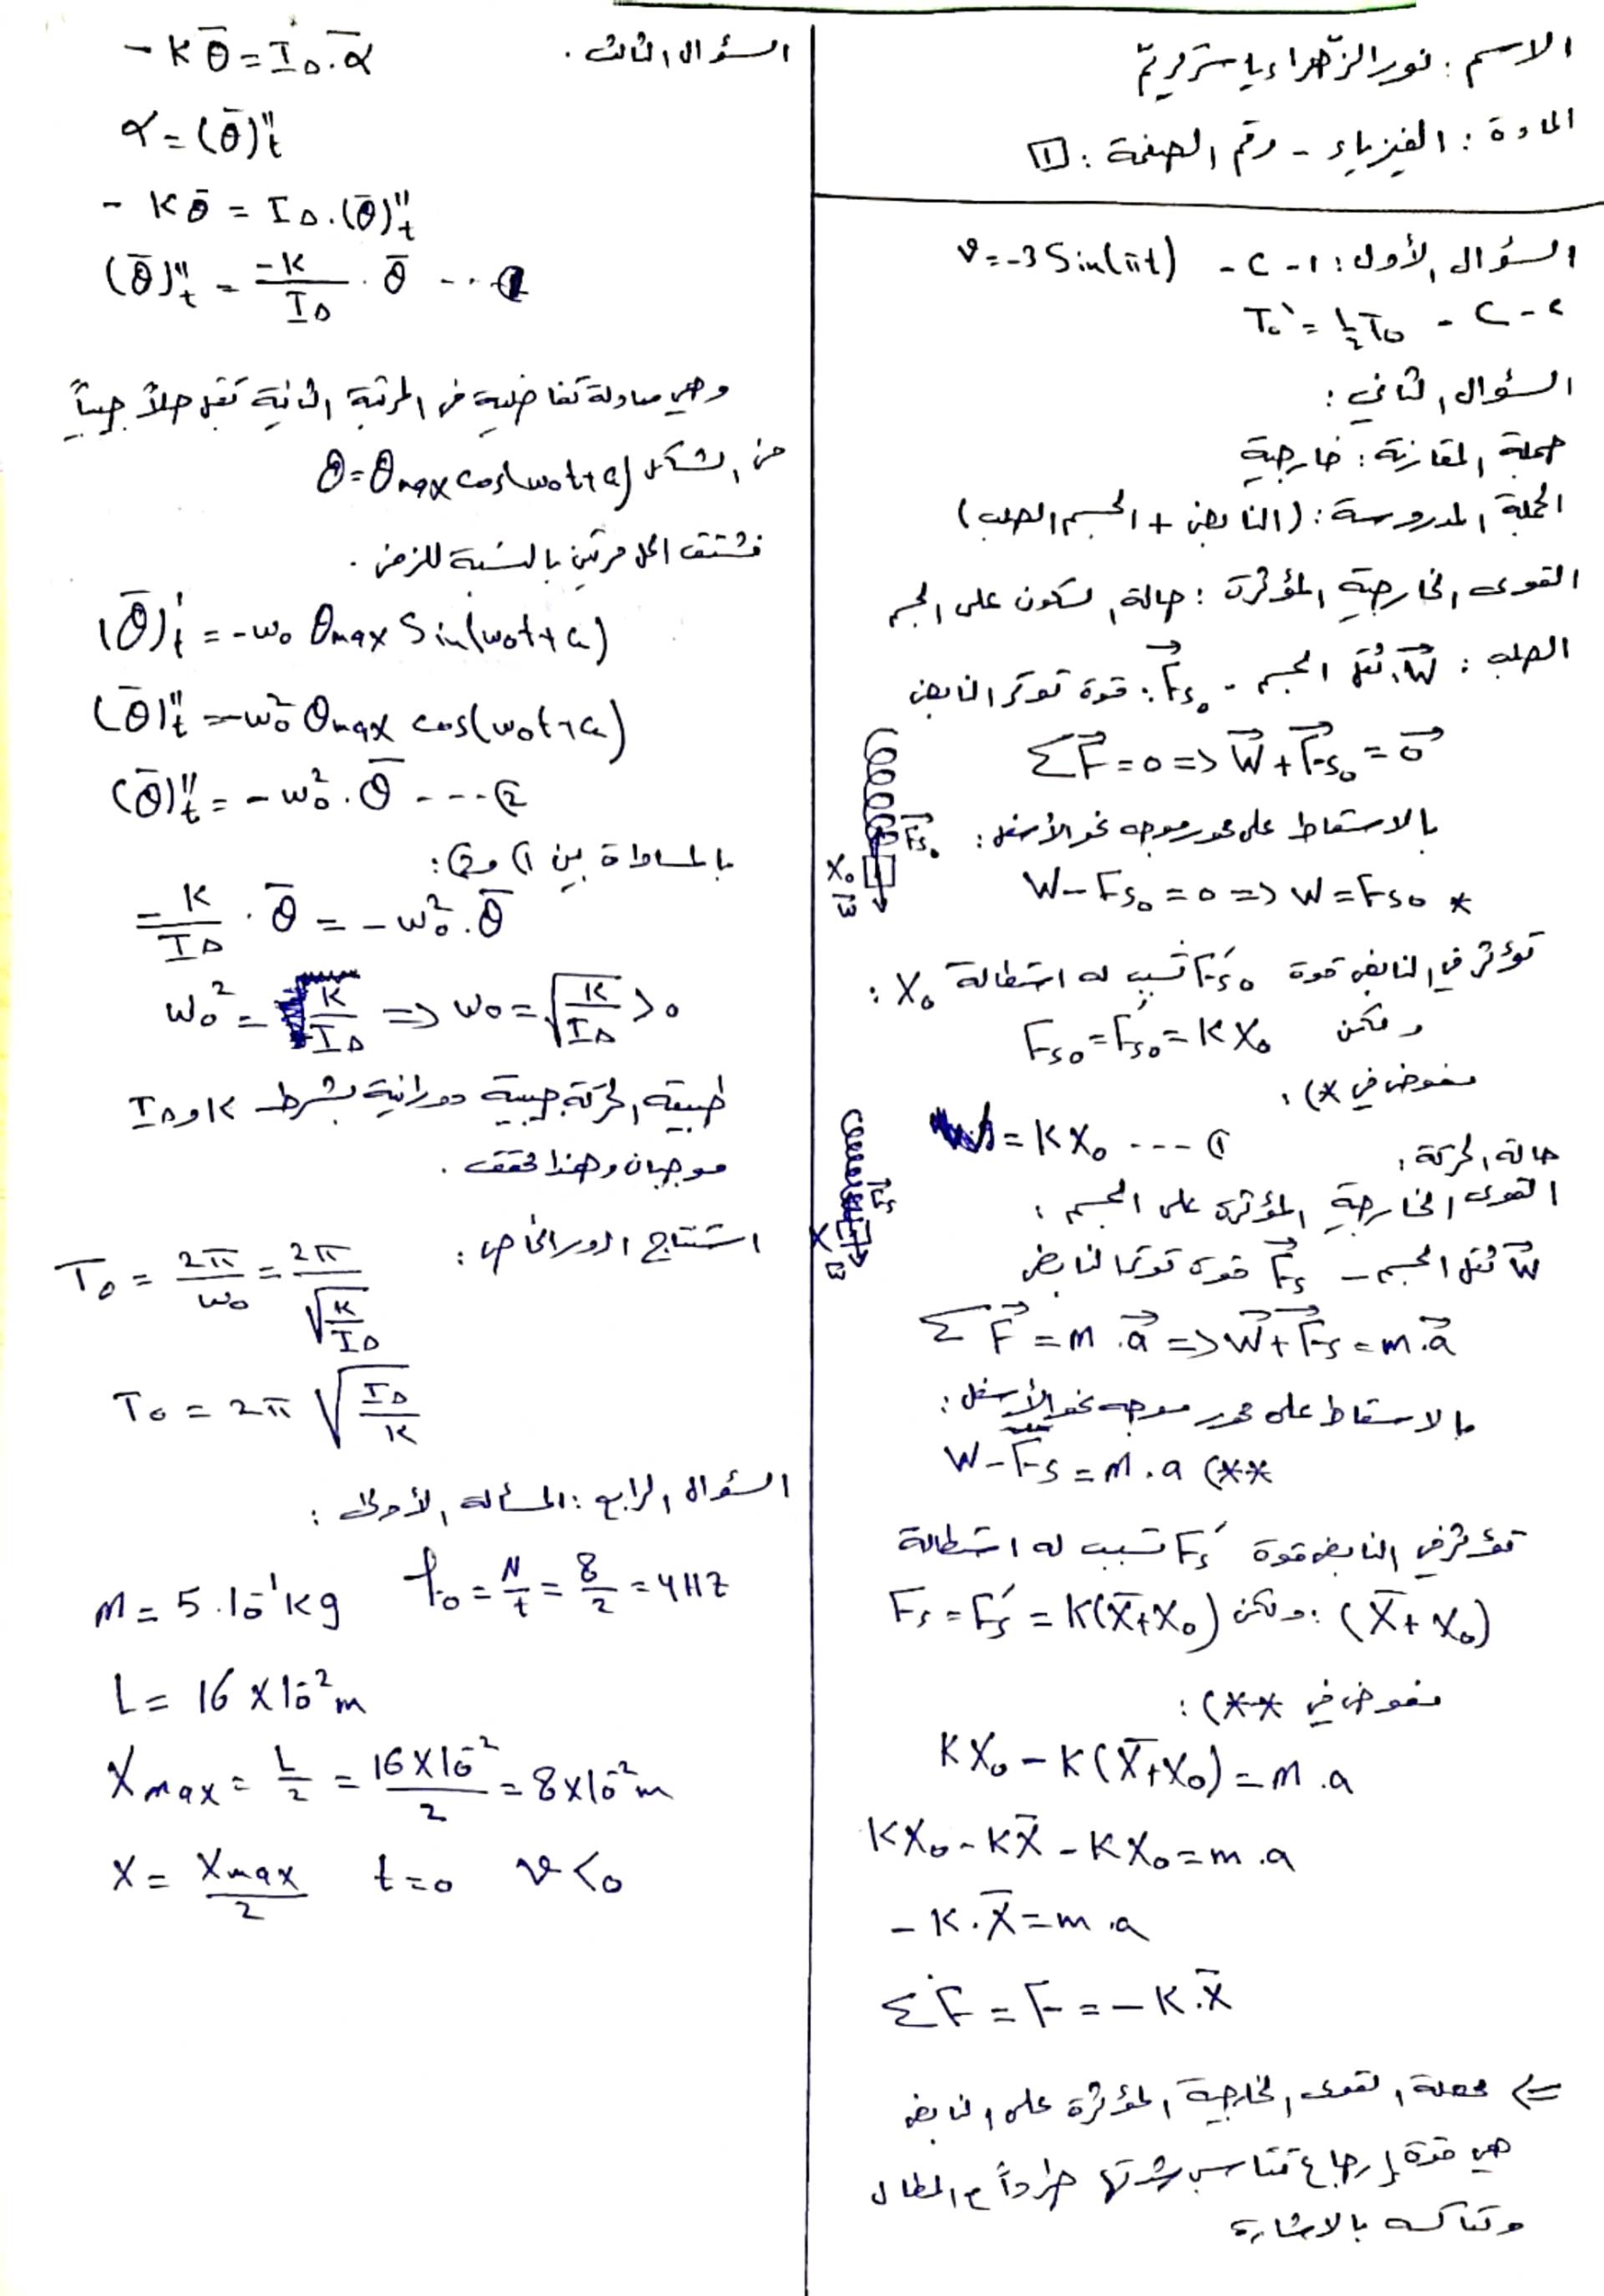 الاسم: نور الزهراء ياسر مريم
المادة: الفيزياء - رقم الصفحة: 1
السؤال الأول: 1 - C - v = -3 Sin(πt)
2 - C - T₀' = ½ T₀
السؤال الثاني:
جملة المقارنة: خارجية
الجملة المدروسة: (النابض + الجسم الصلب)
القوى الخارجية المؤثرة: حالة السكون على الجسم
الصلب: W⃗: ثقل الجسم - F⃗s₀: قوة توتر النابض
ΣF⃗ = 0 => W⃗ + F⃗s₀ = 0⃗
بالاسقاط على محور موجه نحو الأسفل:
W - Fs₀ = 0 => W = Fs₀ *
F⃗s₀
X₀
w⃗
تؤثر في النابض قوة F's₀ تسبب له استطالة X₀:
ولكن Fs₀ = F's₀ = K X₀
نعوض في *):
= K X₀ ---- ①
حالة الحركة:
القوى الخارجية المؤثرة على الجسم:
W⃗ ثقل الجسم - F⃗s قوة توتر النابض
F⃗s
X
w⃗
ΣF⃗ = m . a⃗ => W⃗ + F⃗s = m . a⃗
بالاسقاط على محور موجه نحو الأسفل:
W - Fs = m . a (**
تؤثر في النابض قوة F's تسبب له استطالة
(X̄ + X₀): ولكن Fs = F's = K(X̄ + X₀)
نعوض في **):
K X₀ - K(X̄ + X₀) = m . a
K X₀ - K X̄ - K X₀ = m . a
- K . X̄ = m . a
ΣF = F = - K . X̄
<= محصلة القوى الخارجية المؤثرة على النابض
هي قوة إرجاع تتناسب شدتها طرداً مع المطال
وتعاكسه بالاشارة
السؤال الثالث.
- K θ̄ = I∆ . ᾱ
α = (θ̄)''t
- K θ̄ = I∆ . (θ̄)''t
(θ̄)''t = -K/I∆ . θ̄ --- 1
وهي معادلة تفاضلية من المرتبة الثانية تقبل حلاً جيبياً
من الشكل θ = θmax cos(ω₀t + φ)
نشتق الحل مرتين بالنسبة للزمن.
(θ̄)'t = - ω₀ θmax Sin(ω₀t + φ)
(θ̄)''t = - ω₀² θmax cos(ω₀t + φ)
(θ̄)''t = - ω₀² . θ̄ ---- ②
بالمساواة بين 1 و 2:
-K/I∆ . θ̄ = - ω₀² . θ̄
ω₀² = K/I∆ => ω₀ = √(K/I∆) > 0
طبيعة الحركة جيبية دورانية بشرط K و I∆
موجبان وهذا محقق.
استنتاج الدور الخاص:
T₀ = 2π/ω₀ = 2π/√(K/I∆)
T₀ = 2π √(I∆/K)
السؤال الرابع: المسألة الأولى:
m = 5.10⁻¹ kg f₀ = N/t = 8/2 = 4 HZ
L = 16 × 10⁻² m
Xmax = L/2 = 16 × 10⁻²/2 = 8 × 10⁻² m
X = Xmax/2 t = 0 v < 0